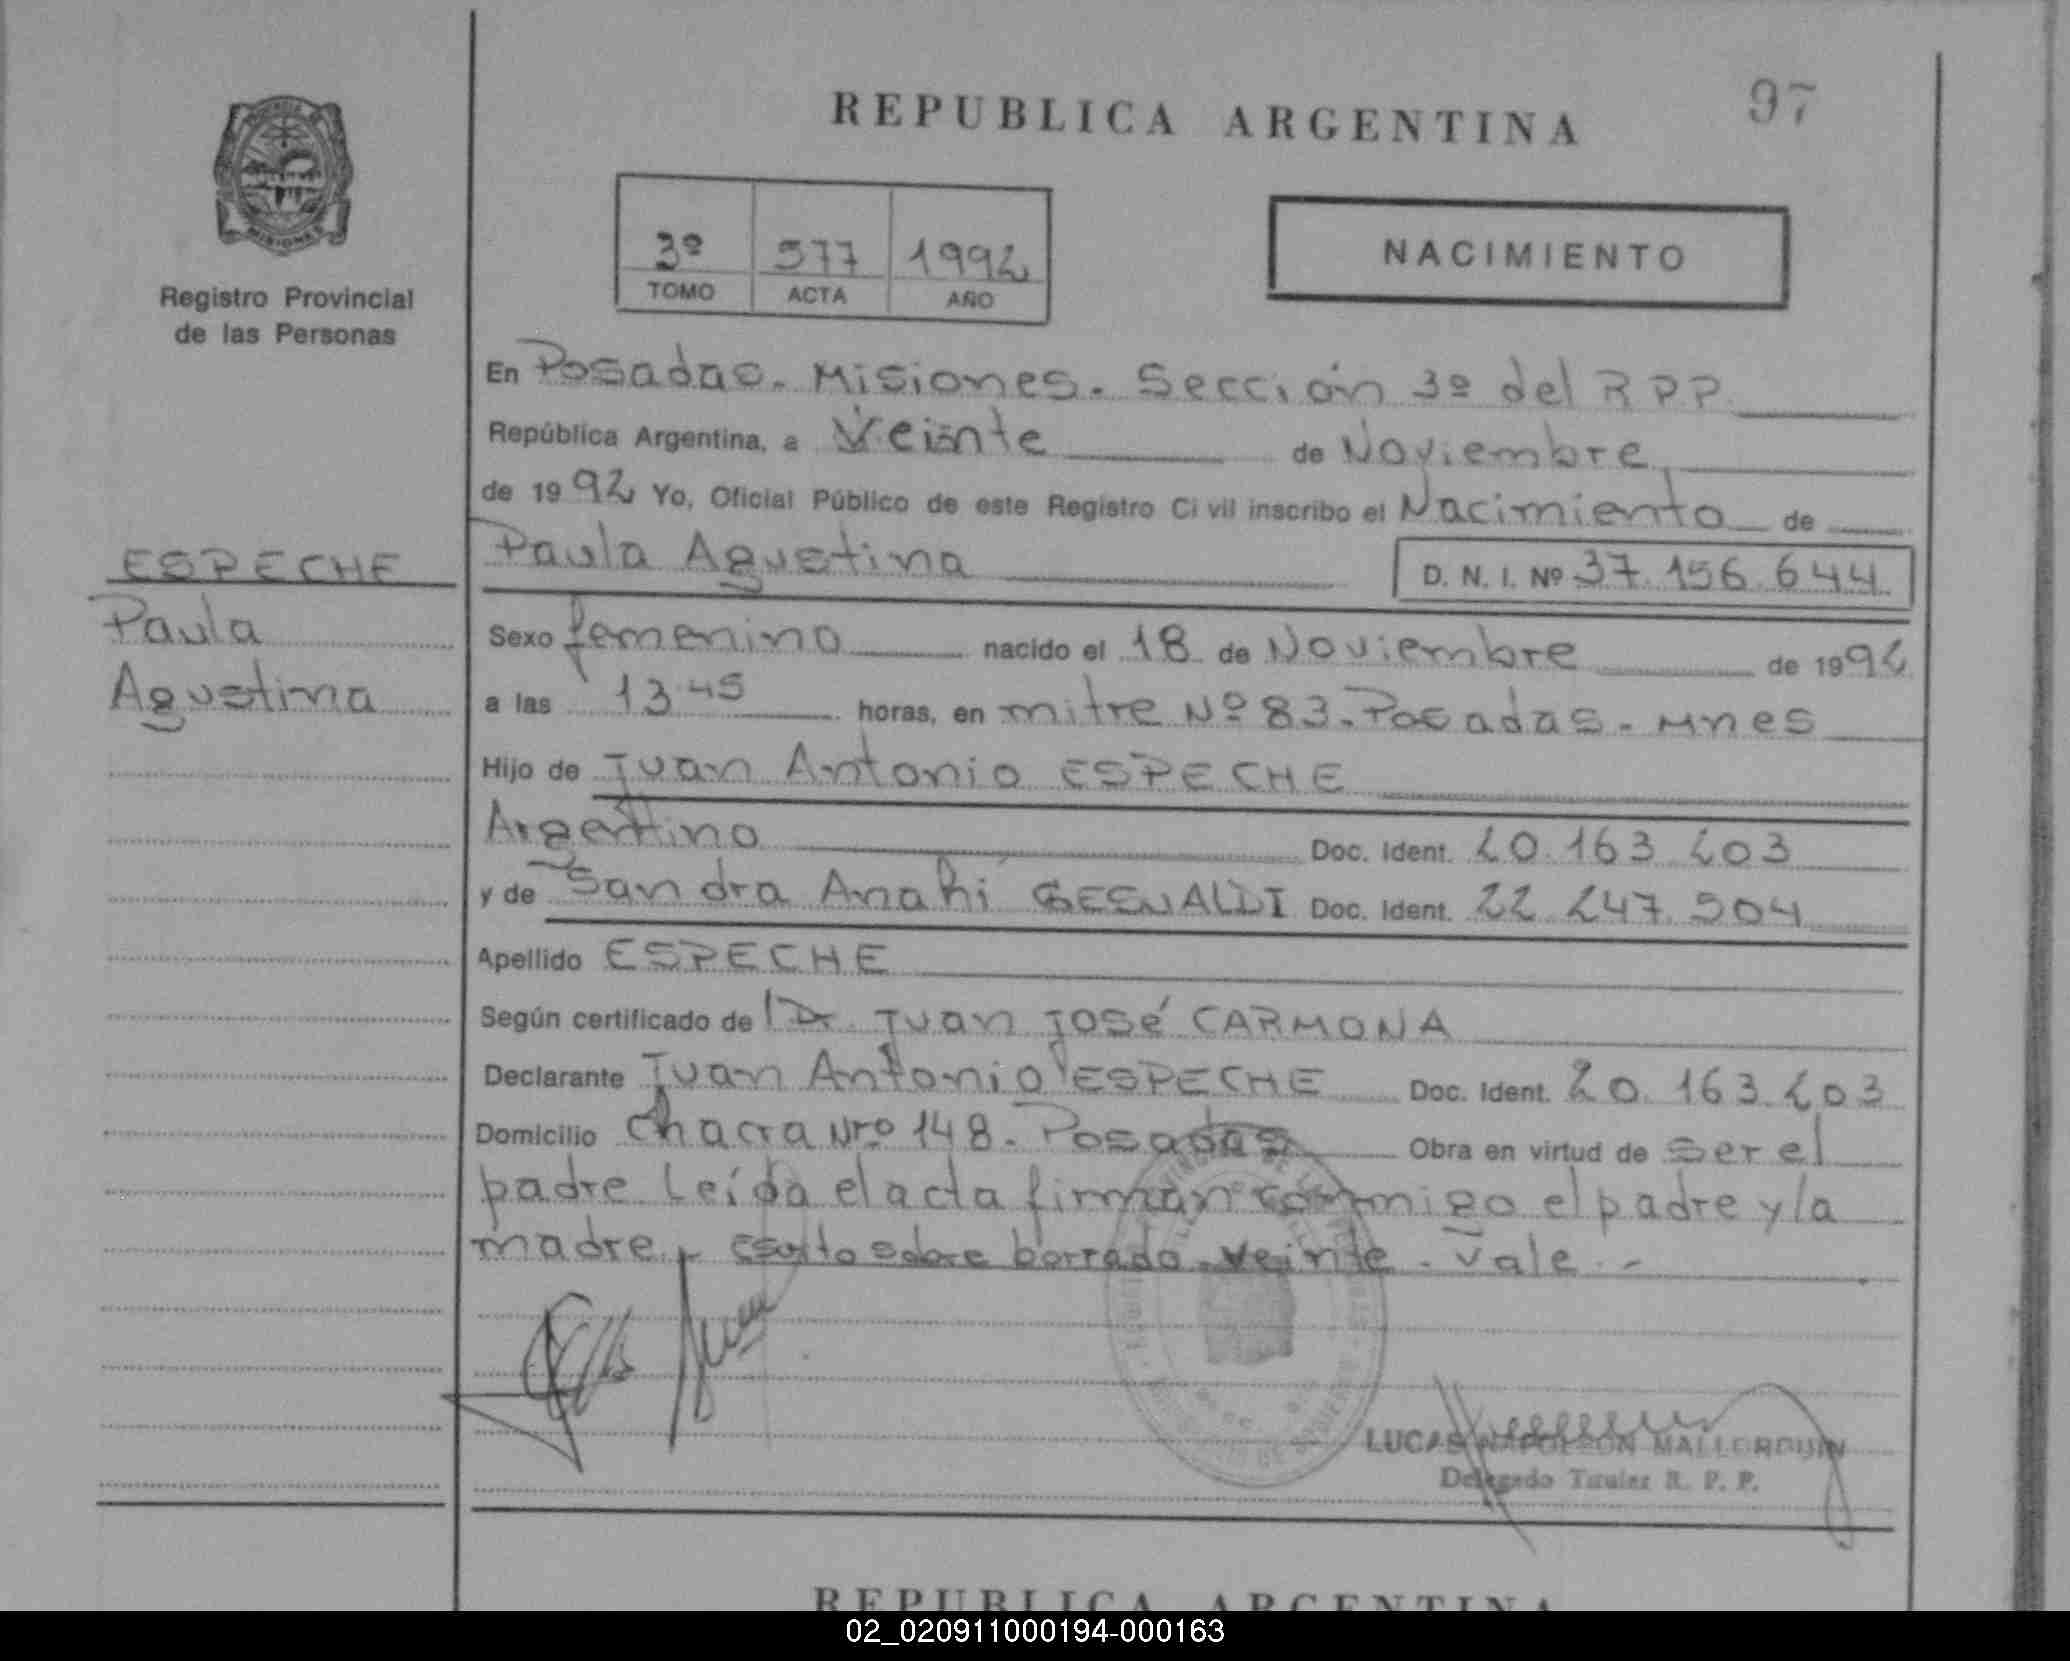 REPUBLICA ARGENTINA
97
PROVINCIA DE MISIONES
Registro Provincial
de las Personas
3º 577 1992
TOMO ACTA AÑO
NACIMIENTO
En Posadas. Misiones. Sección 3º del RPP
República Argentina, a Veinte de Noviembre
de 1992 Yo, Oficial Público de este Registro Civil inscribo el Nacimiento de
ESPECHE
Paula
Agustina
Paula Agustina D. N. I. Nº 37.156.644
Sexo femenino nacido el 18 de Noviembre de 1992
a las 13.45 horas, en mitre Nº 83. Posadas. Mnes
Hijo de Juan Antonio ESPECHE
Argentino Doc. Ident. 20.163.203
y de Sandra Anahí Doc. Ident. 22.247.504
Apellido ESPECHE
Según certificado de Dr. Juan José CARMONA
Declarante Juan Antonio ESPECHE Doc. Ident. 20.163.203
Domicilio Chacra Nro 148. Posadas Obra en virtud de ser el
padre Leída el acta firman conmigo el padre y la
madre. Escrito sobre borrado. Veinte. Vale.-
LUCAS NAPOLEON MALLORQUIN
Delegado Titular R. P. P.
REPUBLICA ARGENTINA
02_020911000194-000163